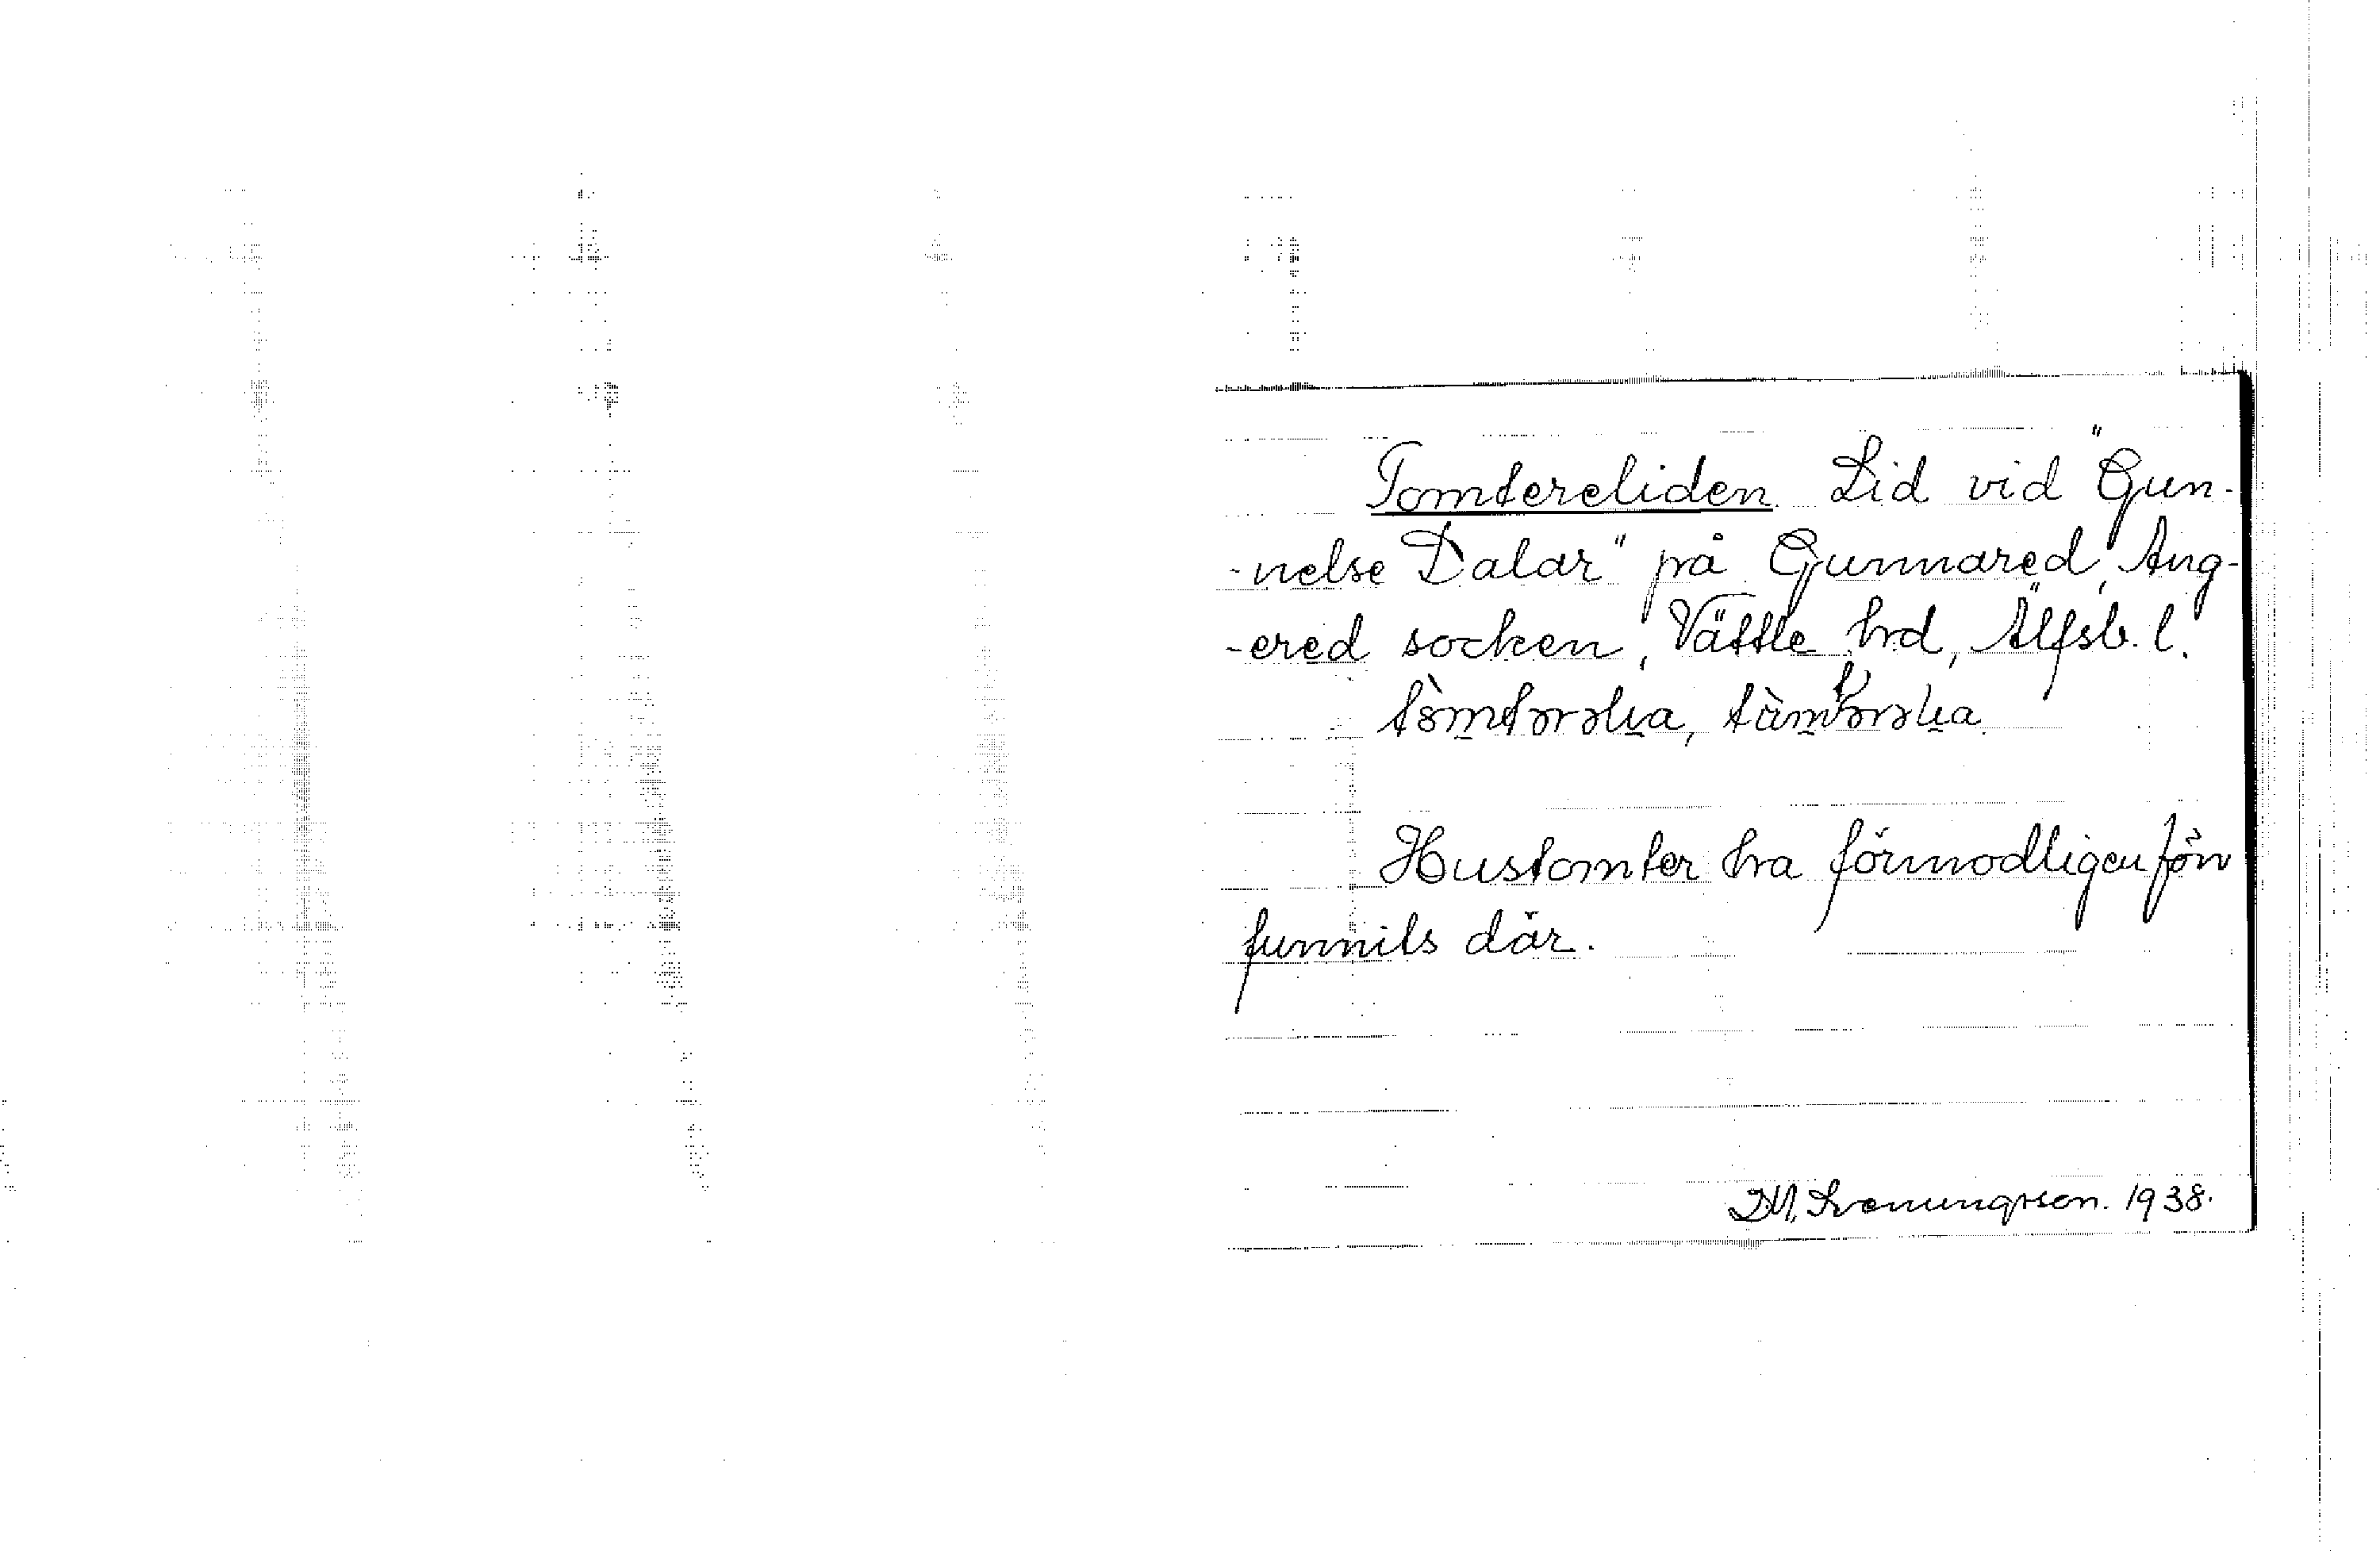 Tomtereliden. Lid vid "Gun-
-nelse Dalar" på Gunnared, Ang-
-ered socken, Vättle hrd, Älfsb. l.
Hustomter ha förmodligen förr
funnits där.
Svenungsson. 1938.